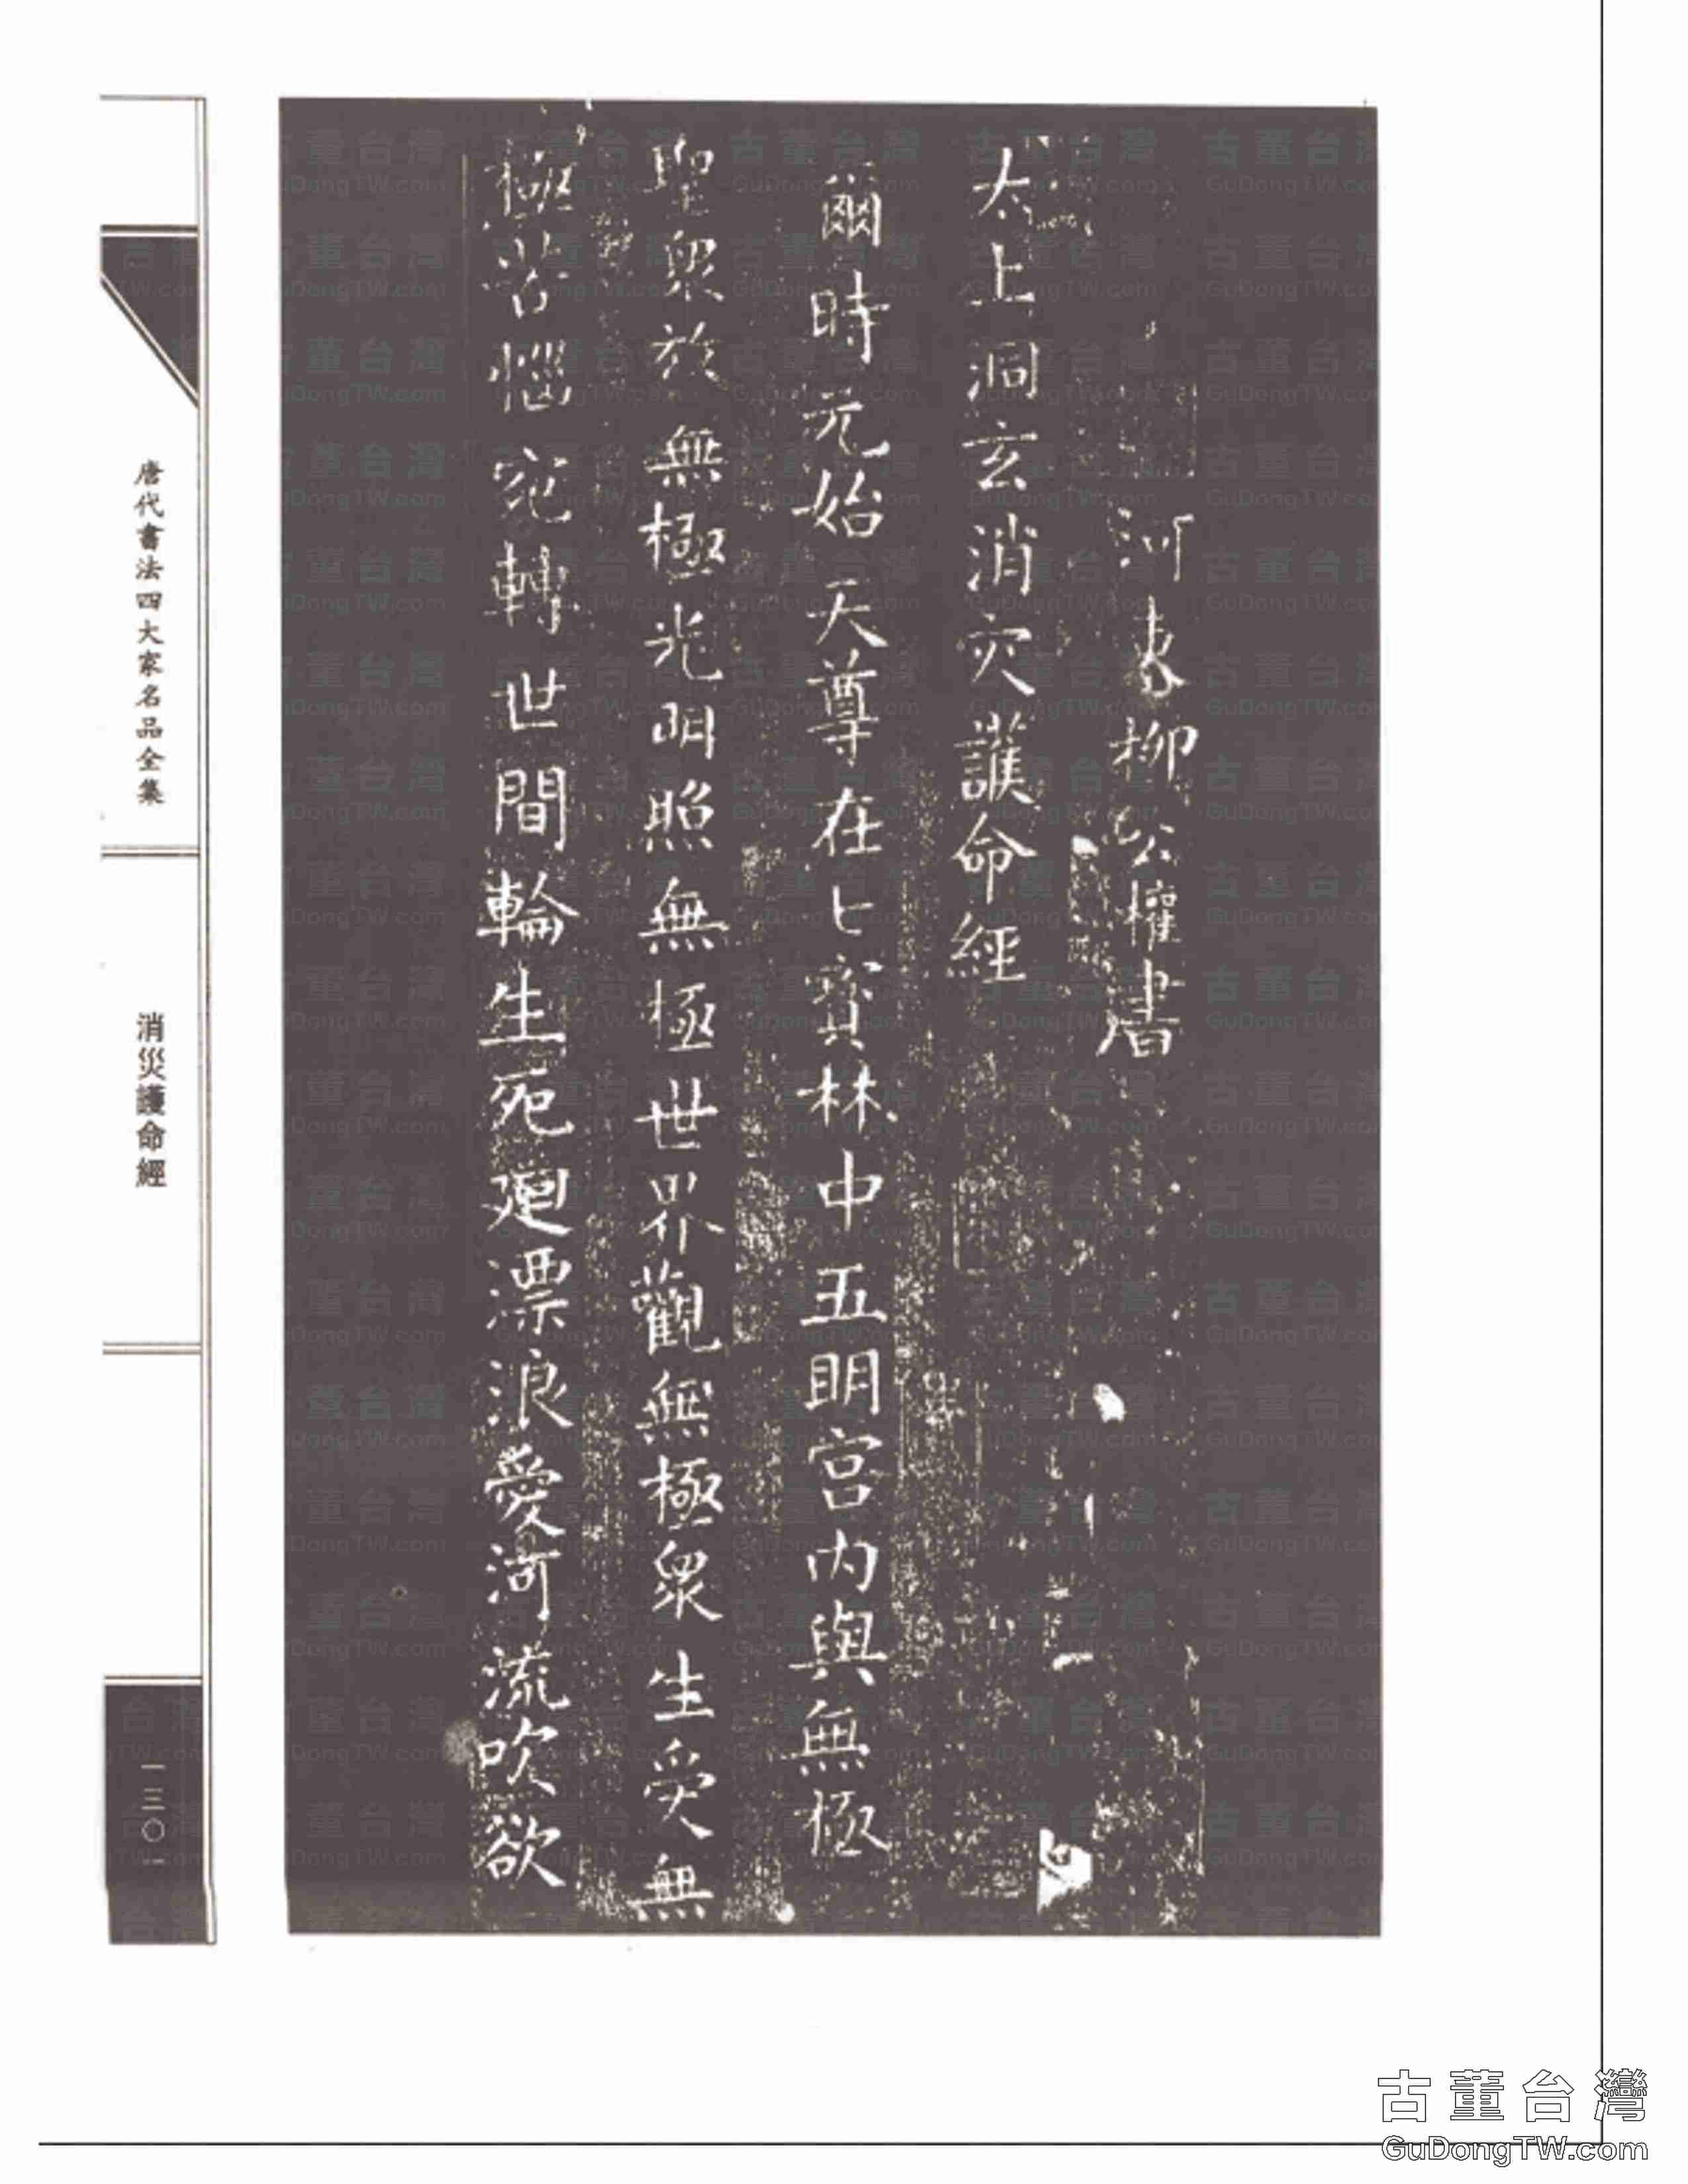 河東柳公權書
太上洞玄消灾護命經
爾時元始天尊在七寶林中五明宮內與無極
聖衆放無極光明照無極世界觀無極衆生受無
極苦惱宛轉世間輪生死迴漂浪愛河流吹欲
唐代書法四大家名品全集
消災護命經
一三〇一
古董台灣
GuDongTW.com